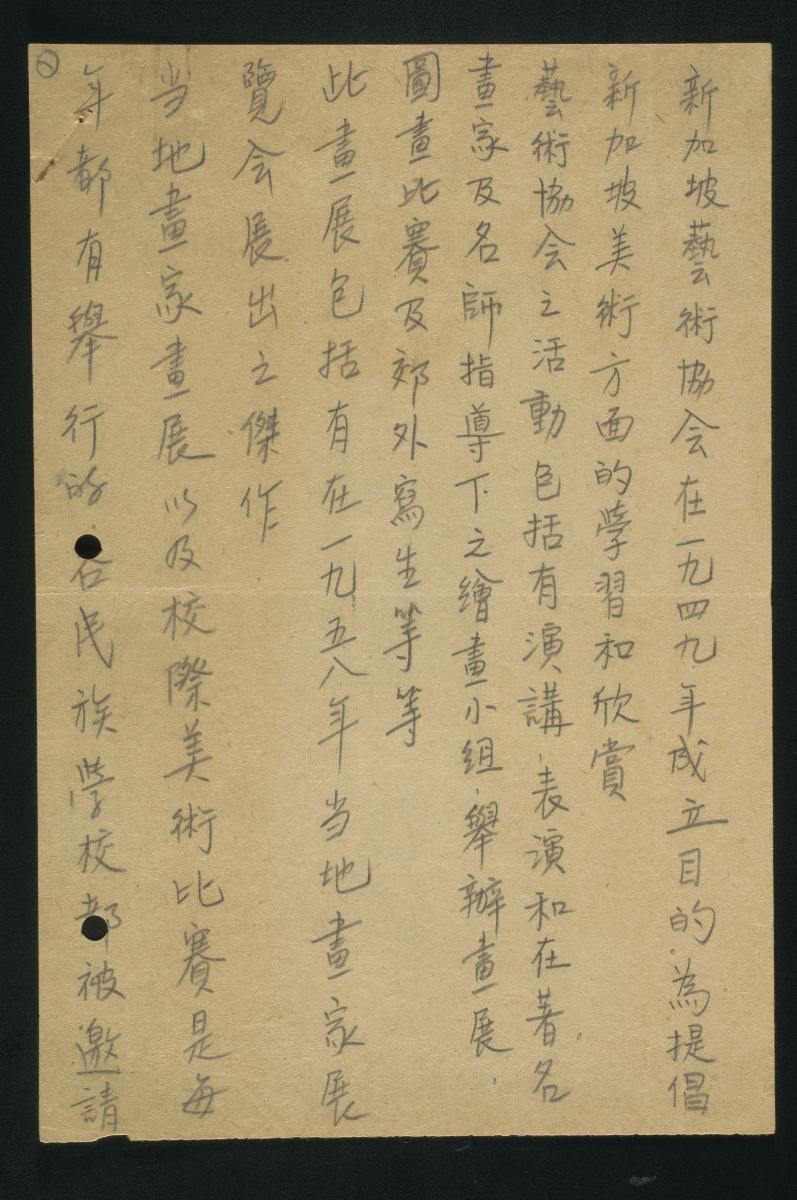 新加坡藝術協会在一九四九年成立目的為提倡
新加坡美術方面的學習和欣賞
藝術協会之活動包括有演講,表演和在著名
畫家及名師指導下之繪畫小组,舉辦畫展,
圖畫比賽及郊外寫生等等
此畫展包括有在一九五八年当地畫家展
覽会展出之傑作
当地畫家畫展以及校際美術比賽是每
年都有舉行的,各民族學校都被邀請